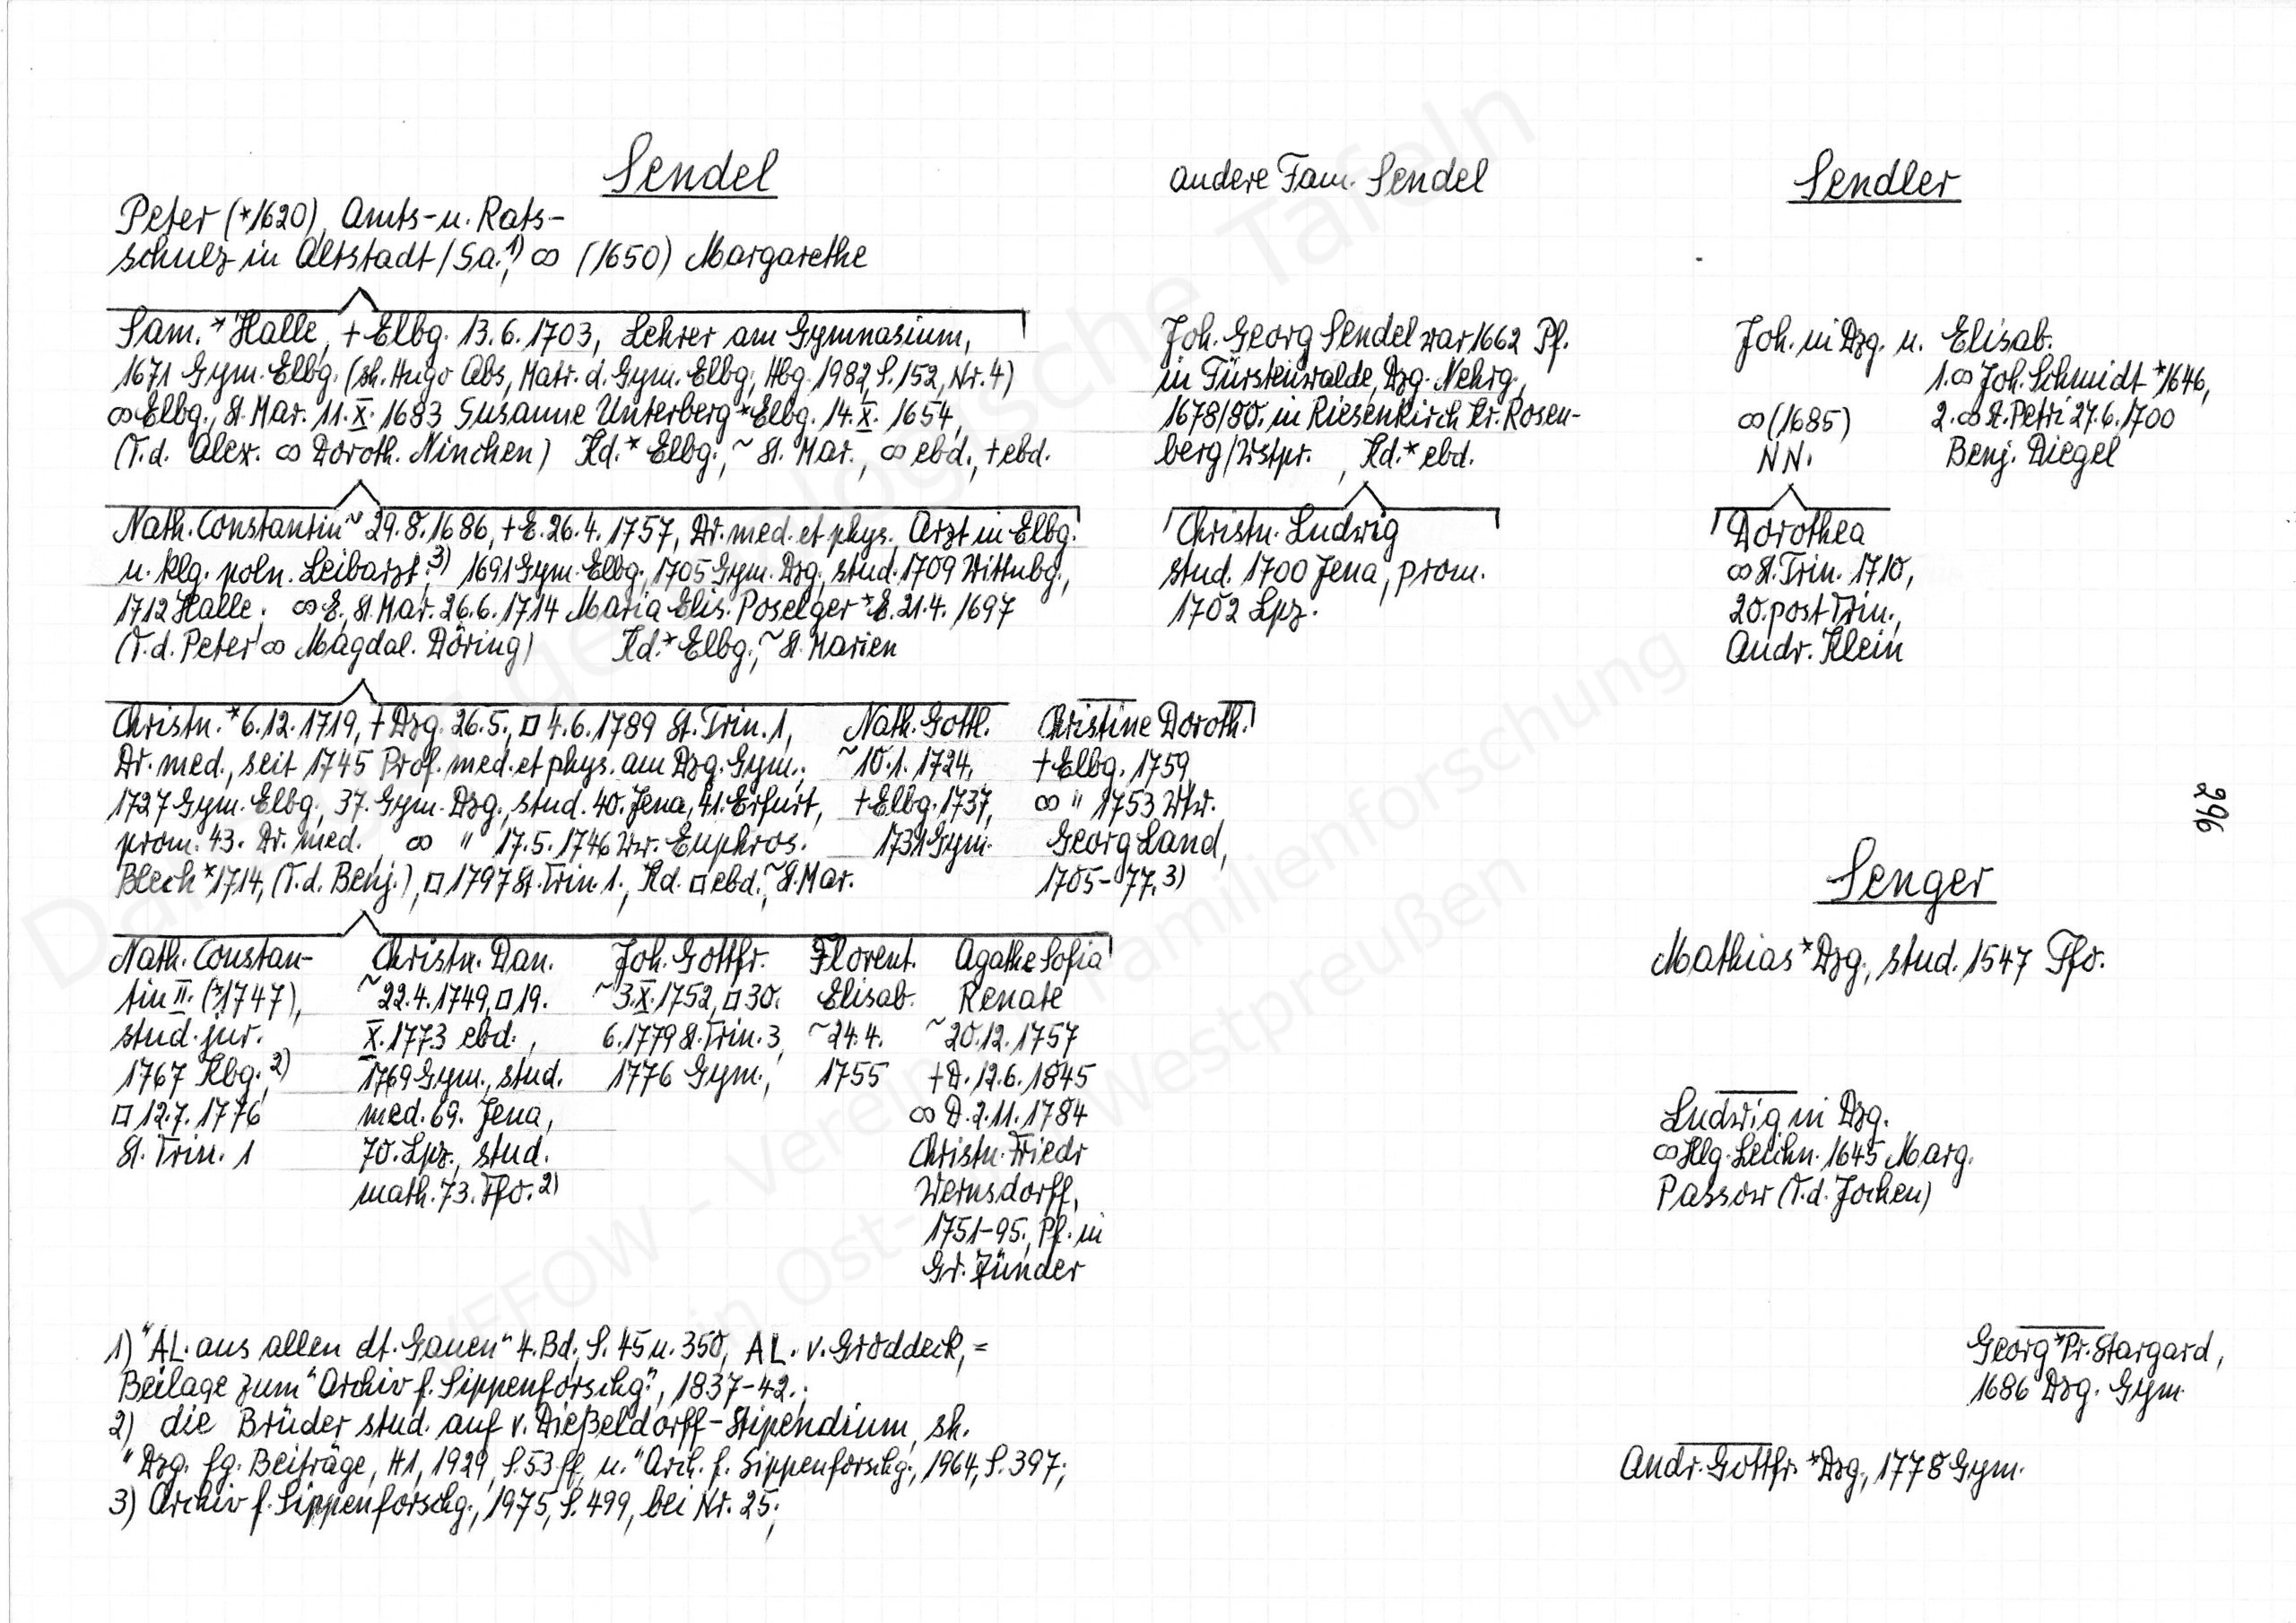 Sendel
Peter (*1620), Amts- u. Rats-
schulz in Altstadt/Sa.1), ∞ (1650) Margarethe
Sam. * Halle, + Elbg. 13.6.1703, Lehrer am Gymnasium,
1671 Gym. Elbg. (sh. Hugo Abs, Matr. d. Gym. Elbg., Hbg. 1982, S. 152, Nr. 4)
∞ Elbg., St. Mar. 11.X. 1683 Susanne Unterberg * Elbg. 14.X. 1654,
(T.d. Alex. ∞ Doroth. Ninchen) Kd. * Elbg., ~ St. Mar., ∞ ebd., + ebd.
Nath. Constantin ~ 29.8.1686, + E. 26.4.1757, Dr. med. et phys., Arzt in Elbg.
u. klg. poln. Leibarzt;3) 1691 Gym. Elbg., 1705 Gym. Dzg., stud. 1709 Wittnbg.,
1712 Halle; ∞ E., St. Mar. 26.6.1714 Maria Elis. Poselger * E. 21.4.1697
(T.d. Peter ∞ Magdal. Döring) Kd. * Elbg., ~ St. Marien
Christn. * 6.12.1719, + Dzg. 26.5., □ 4.6.1789 St. Trin. 1,
Dr. med., seit 1745 Prof. med. et phys. am Dzg. Gym.;
1727 Gym. Elbg., 37. Gym. Dzg., stud. 40. Jena, 41. Erfurt,
prom. 43. Dr. med., ∞ " 17.5.1746 Ww. Euphros.
Blech * 1714, (T.d. Benj.), □ 1797 St. Trin. 1., Kd. □ ebd., ~ St. Mar.
Nath. Gottl.
~ 10.1.1724,
+ Elbg. 1737,
1731 Gym.
Christine Doroth.
+ Elbg. 1759,
∞ " 1753 Wwr.
Georg Land,
1705-77.3)
Nath. Constan-
tin II. (*1747),
stud. jur.
1767 Kbg.,2)
□ 12.7.1776
St. Trin. 1
Christn. Dan.
~ 22.4.1749, □ 19.
X. 1773 ebd.,
1769 Gym., stud.
med. 69. Jena,
70. Lpz., stud.
math. 73. Ffo.2)
Joh. Gottfr.
~ 3.X.1752, □ 30.
6.1779 St. Trin. 3,
1776 Gym.,
Florent.
Elisab.
~ 24.4.
1755
Agathe Sofia
Renate
~ 20.12.1757
+ D. 12.6.1845
∞ D. 2.11.1784
Christn. Friedr
Wernsdorff,
1751-95., Pf. in
Gr. Zünder
1) "AL. aus allen dt. Gauen" 4. Bd., S. 45 u. 350, AL. v. Groddeck, =
Beilage zum "Archiv f. Sippenforschg.", 1837-42.;
2) die Brüder stud. auf v. Dießeldorff-Stipendium, sh.
"Dzg. fg. Beiträge, H1, 1929, S. 53 ff, u. "Arch. f. Sippenforschg., 1964, S. 397;
3) Archiv f. Sippenforschg., 1975, S. 499, bei Nr. 25;
andere Fam. Sendel
Joh. Georg Sendel war 1662 Pf.
in Fürstenwalde, Dzg. Nehrg.,
1678/80. in Riesenkirch Kr. Rosen-
berg/Wstpr., Kd. * ebd.
Christn. Ludwig
stud. 1700 Jena, prom.
1702 Lpz.
Sendler
Joh. in Dzg. u.
∞ (1685)
NN.
Elisab.
1. ∞ Joh. Schmidt * 1646,
2. ∞ St. Petri 27.6.1700
Benj. Diegel
Dorothea
∞ St. Trin. 1710,
20. post Trin.,
Andr. Klein
296
Senger
Mathias * Dzg., stud. 1547 Ffo.
Ludwig in Dzg.
∞ Hlg. Leichn. 1645 Marg.
Passow (T.d. Jochen)
Georg * Pr. Stargard,
1686 Dzg. Gym.
Andr. Gottfr. * Dzg., 1778 Gym.